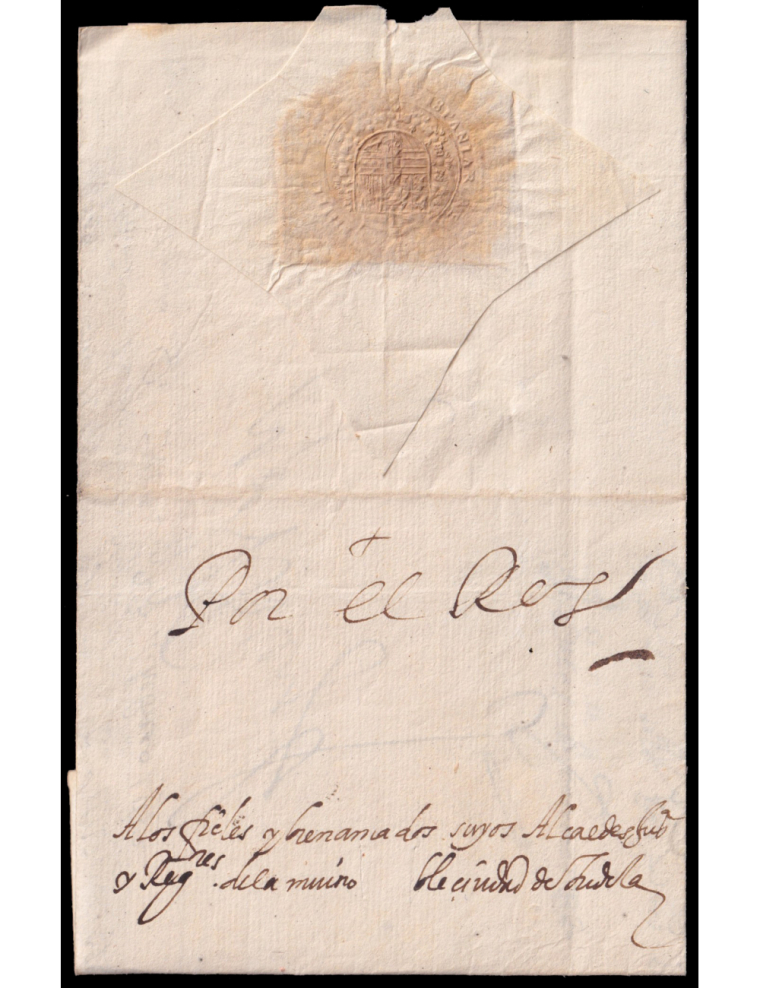 HISPANIAR
Por el Rey
A los fieles y bien amados suyos Alcaldes Jurˢ
y Regʳᵉˢ de la muy noble ciudad de Tudela